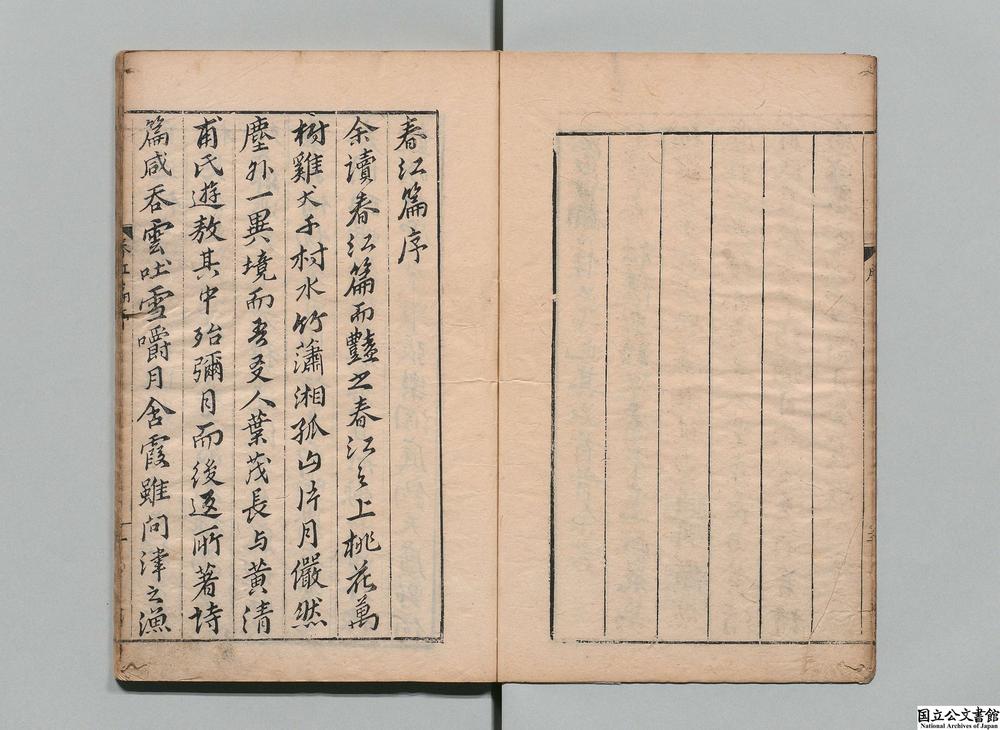 春江篇序
余讀春江篇而艷之春江之上桃花萬
樹雞犬千村水竹瀟湘孤山片月儼然
塵外一異境而吾友人葉茂長与黄清
甫氏遊敖其中殆彌月而後返所著詩
篇咸吞雲吐雪嚼月含霞雖問津之漁
春江篇序
序
国立公文書館
National Archives of Japan